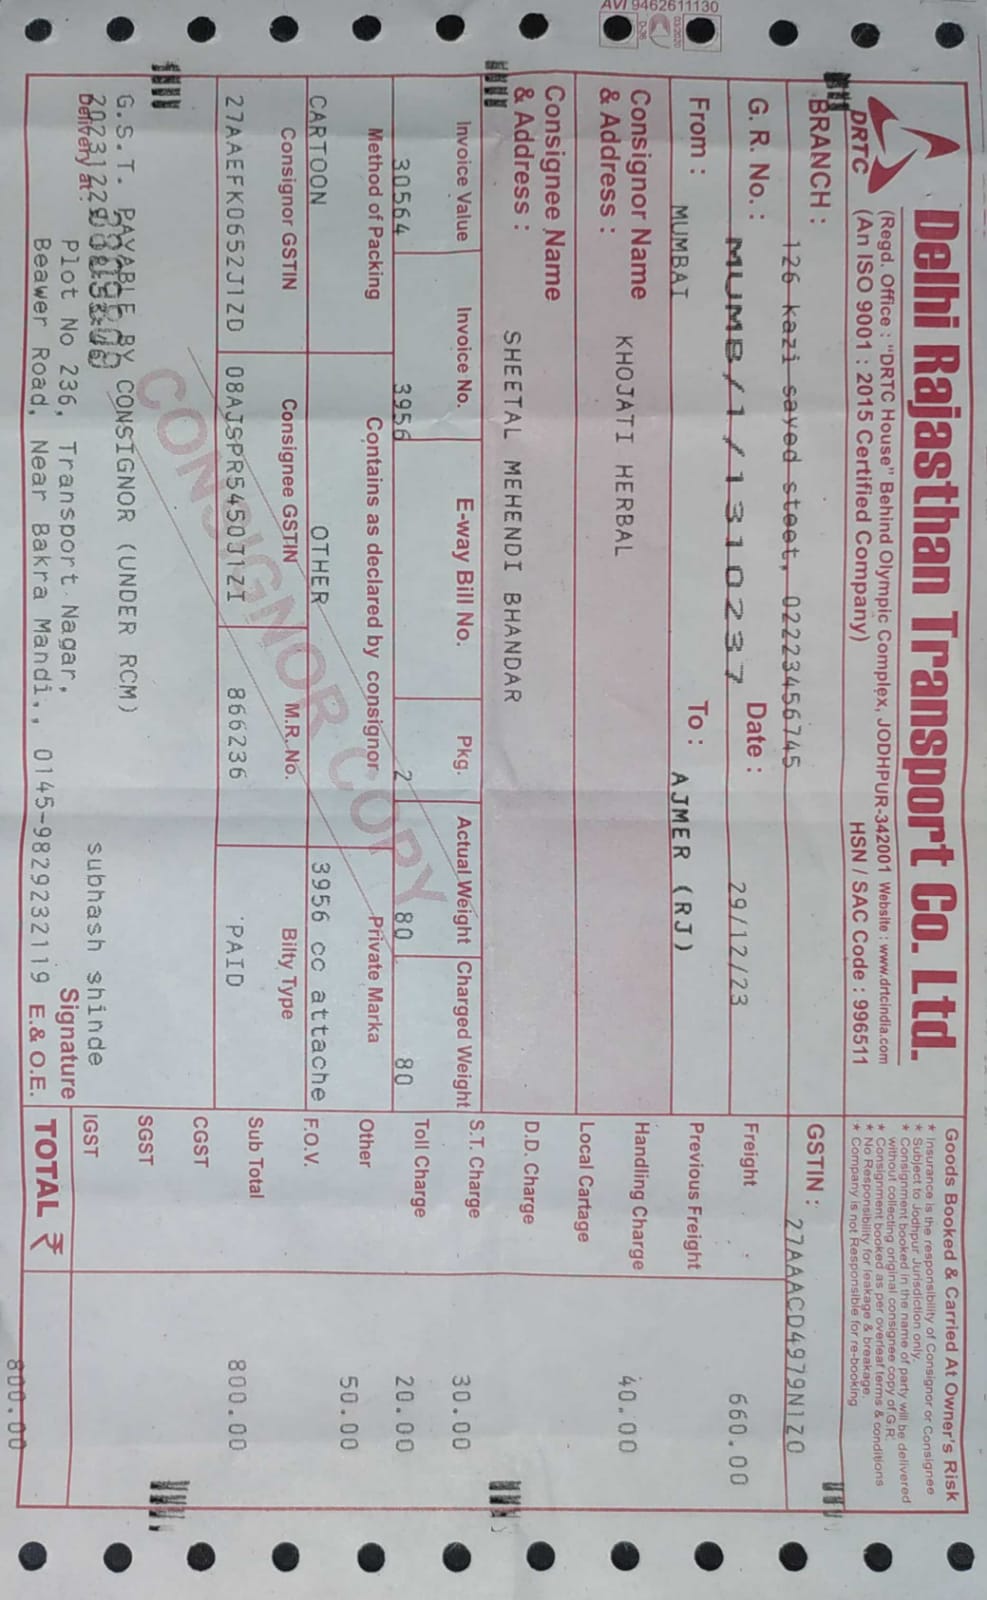 AVI 9462611130
03/2020
D-36
DRTC
Delhi Rajasthan Transport Co. Ltd.
(Regd. Office : "DRTC House" Behind Olympic Complex, JODHPUR-342001 Website : www.drtcindia.com
(An ISO 9001 : 2015 Certified Company)
HSN / SAC Code : 996511
Goods Booked & Carried At Owner's Risk
★ Insurance is the responsibility of Consignor or Consignee
★ Subject to Jodhpur Jurisdiction only.
★ Consignment booked in the name of party will be delivered
without collecting original consignee copy of G.R.
★ Consignment booked as per overleaf terms & conditions
★ No Responsibility for leakage & breakage.
★ Company is not Responsible for re-booking
BRANCH : 126 kazi sayed steet, 02223456745
GSTIN : 27AAACD4979N1Z0
G. R. No. : MUMB/1/1310237 Date : 29/12/23
From : MUMBAI To : AJMER (RJ)
Consignor Name
& Address : KHOJATI HERBAL
Consignee Name
& Address : SHEETAL MEHENDI BHANDAR
Invoice Value Invoice No. E-way Bill No. Pkg. Actual Weight Charged Weight
30564 3956 2 80 80
Method of Packing Contains as declared by consignor Private Marka
CARTOON OTHER 3956 cc attache
Consignor GSTIN Consignee GSTIN M.R. No. Bilty Type
27AAEFK0652J1ZD 08AJSPR5450J1ZI 866236 PAID
CONSIGNOR COPY
G.S.T. PAYABLE BY CONSIGNOR (UNDER RCM)
subhash shinde
Delivery at :
Signature
Plot No 236, Transport Nagar,
Beawer Road, Near Bakra Mandi., 0145-9829232119 E.& O.E.
Freight 660.00
Previous Freight
Handling Charge 40.00
Local Cartage
D.D. Charge
S.T. Charge 30.00
Toll Charge 20.00
Other 50.00
F.O.V.
Sub Total 800.00
CGST
SGST
IGST
TOTAL ₹ 800.00